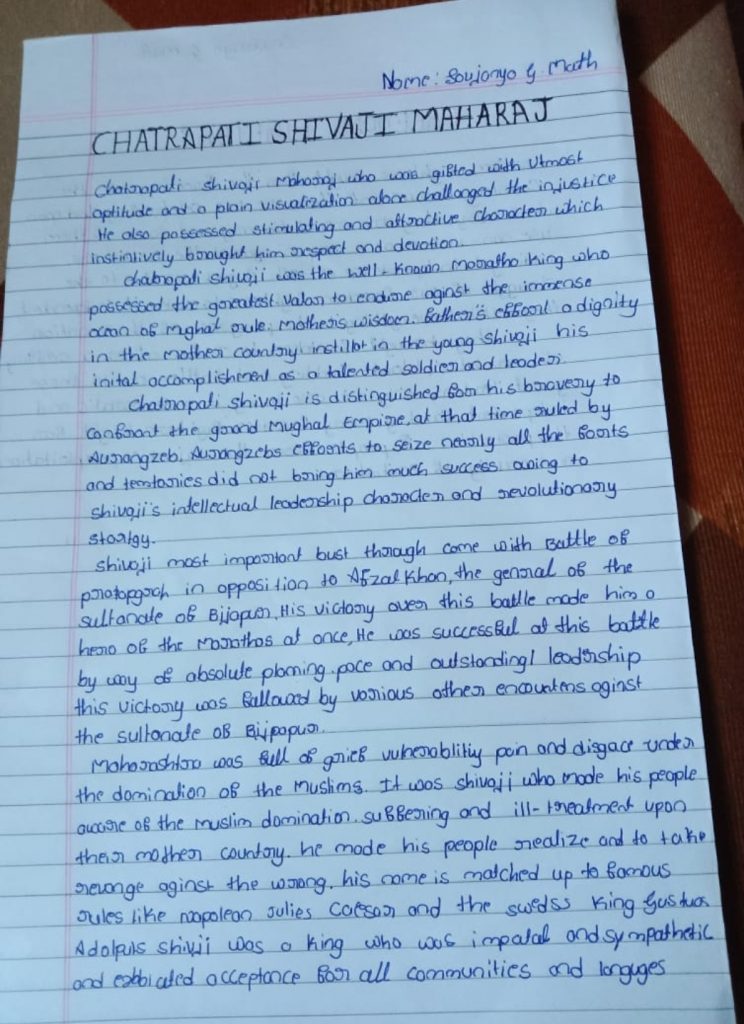 Name: Soujanya G Math
CHATRAPATI SHIVAJI MAHARAJ
Chatrapati shivaji Maharaj who was gifted with Utmost
aptitude and a plain visualization alone challanged the injustice
He also possessed stimulating and attractive character which
instinlively brought him respect and devotion.
chatrapali shivaji was the well-known maratha King who
possessed the greatest valar to endure aginst the immense
ocean of mghal rule. mother's wisdom. father's effort a dignity
in the mother country instillat in the young shivaji his
inital accomplishment as a talented soldier and leader.
Chatrapali shivaji is distinguished for his bravery to
Confarant the grand Mughal Empire, at that time ruled by
Aurangzeb. Aurangzebs efforts to seize nearly all the forts
and terrtories did not bring him much success owing to
shivaji's intellectual leadership character and revolutionary
startgy.
Shivaji most important bust through came with Battle of
pratapgarh in opposition to Afzal Khan, the genral of the
sultanate of Bijapur, His victory over this battle made him a
hero of the Marathas at once, He was successful at this battle
by way of absolute planing. pace and outstandingl leadership
this victory was fallowed by various other encounters aginst
the sultanate of Bijpapur.
Maharashtra was full of grief vulnerablitiy pain and disgace under
the domination of the muslims. It was shivaji who made his people
aware of the muslim domination. suffering and ill-treatment upon
their mother country. he made his people realize and to take
revenge aginst the wrong. his name is matched up to famous
rules like napolean Julies Caesar and the swedss King Gustua
Adolpuls shivji was a king who was impatal and sympathetic
and exbiated acceptance for all communities and languges